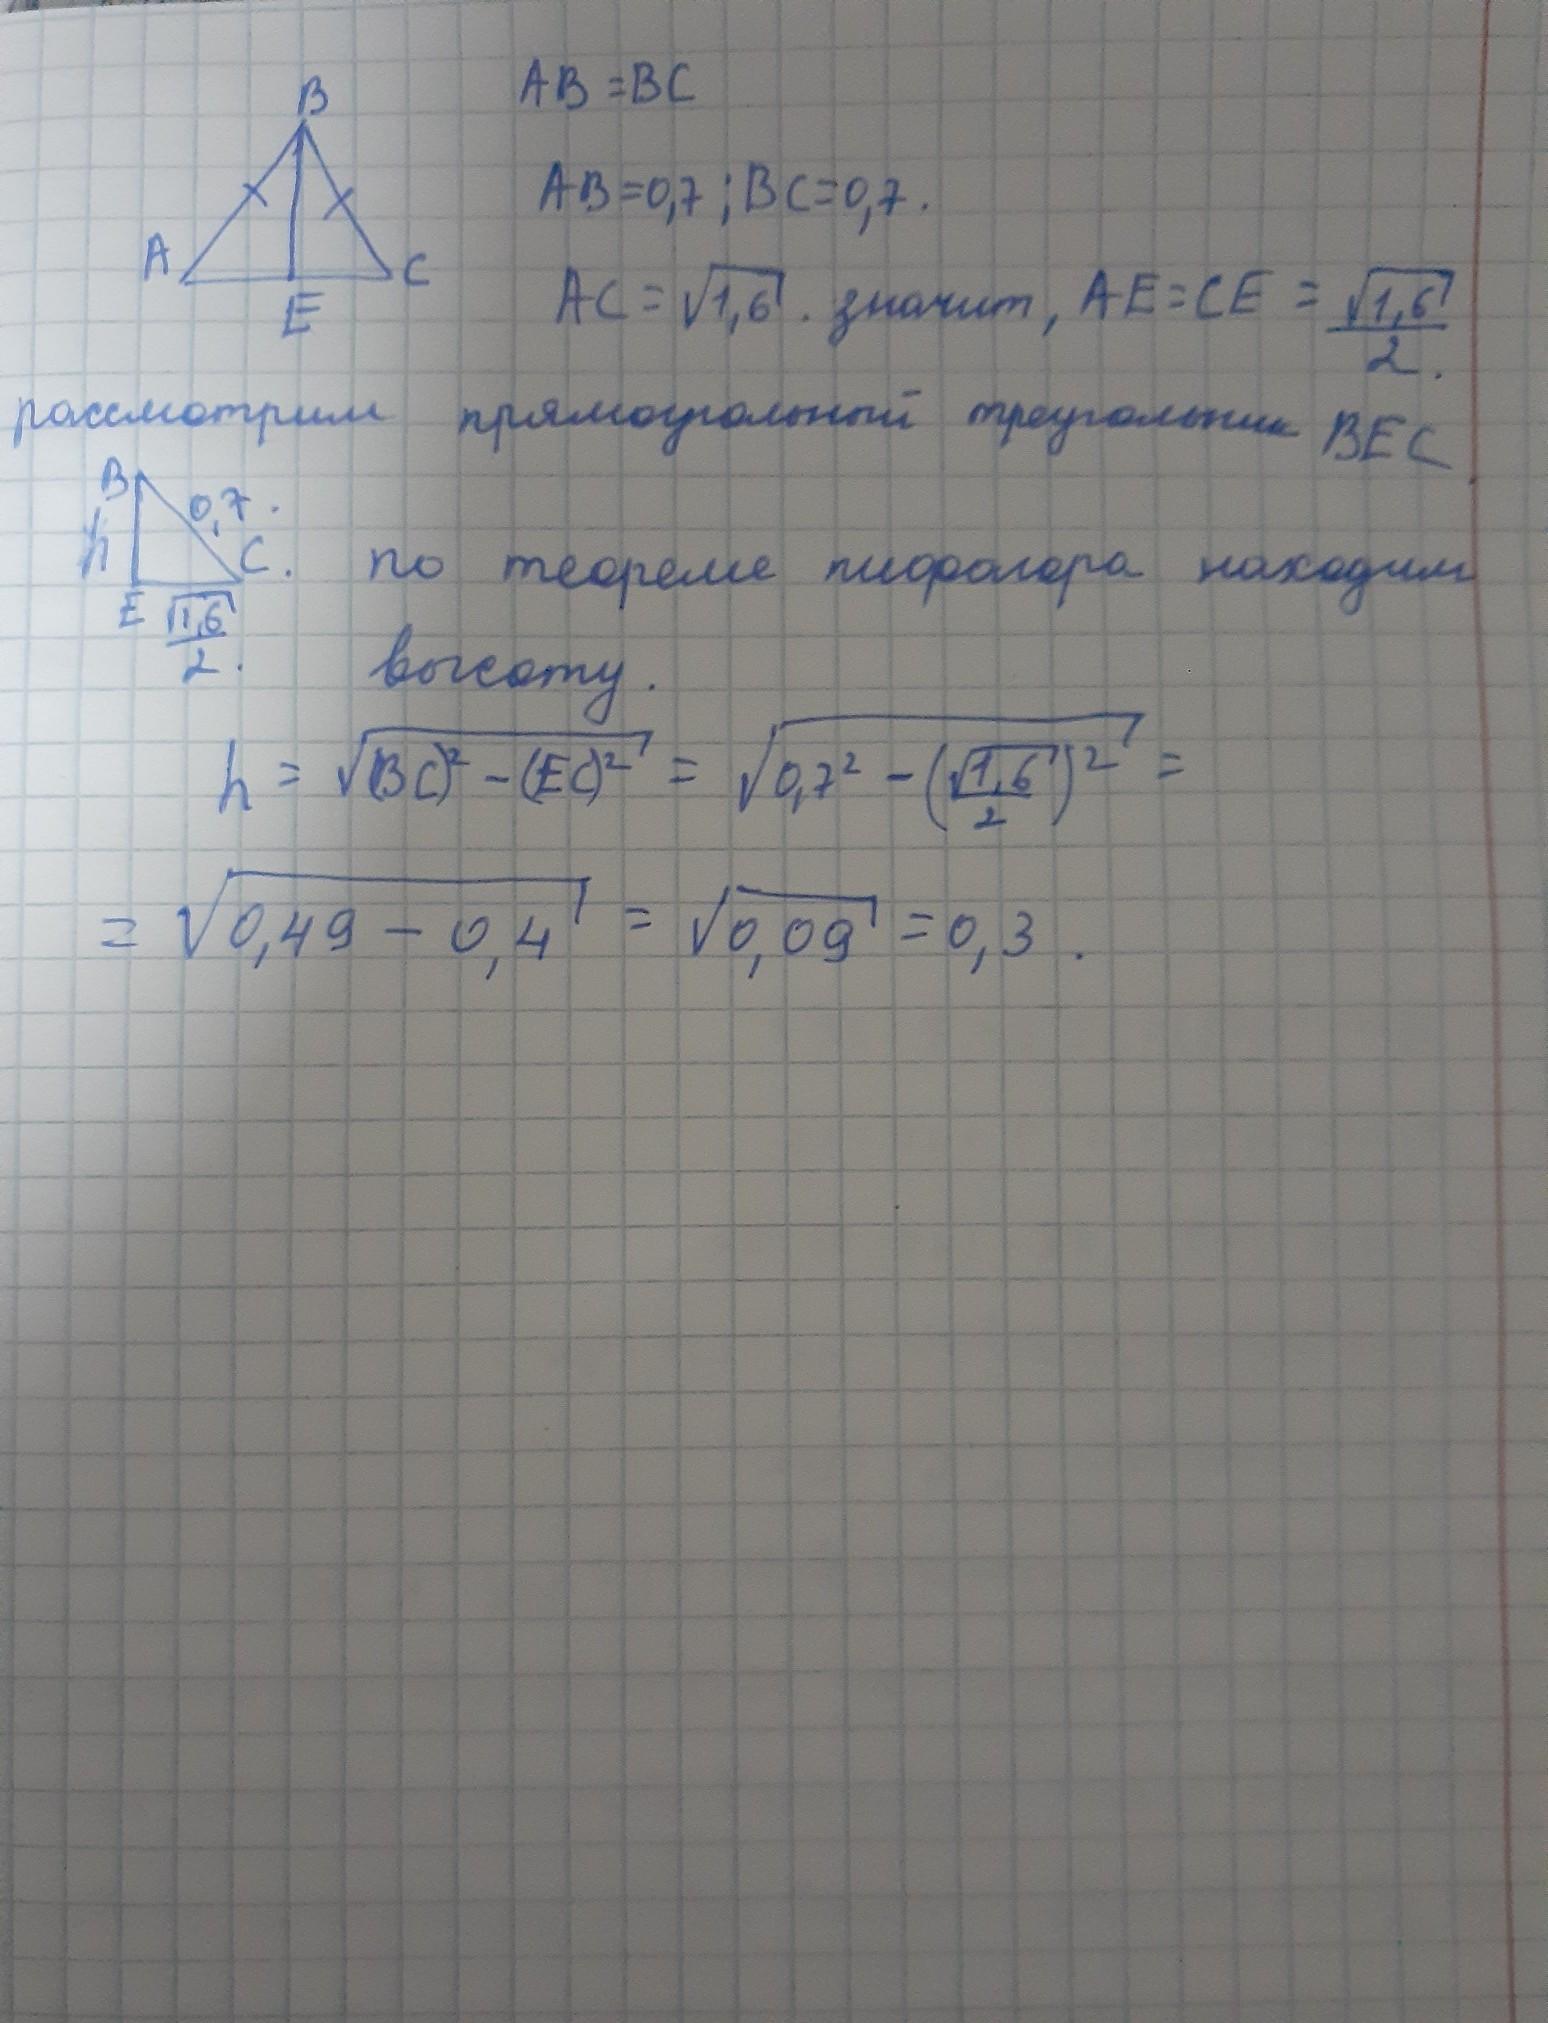 B
A
C
E
AB = BC
AB = 0,7 ; BC = 0,7.
AC = √1,6 . значит, AE = CE = √1,6 / 2.
рассмотрим прямоугольный треугольник BEC
B
0,7.
h
C.
E
√1,6 / 2.
по теореме пифагора находим
высоту.
h = √(BC)² - (EC)² = √0,7² - (√1,6 / 2)² =
= √0,49 - 0,4 = √0,09 = 0,3 .